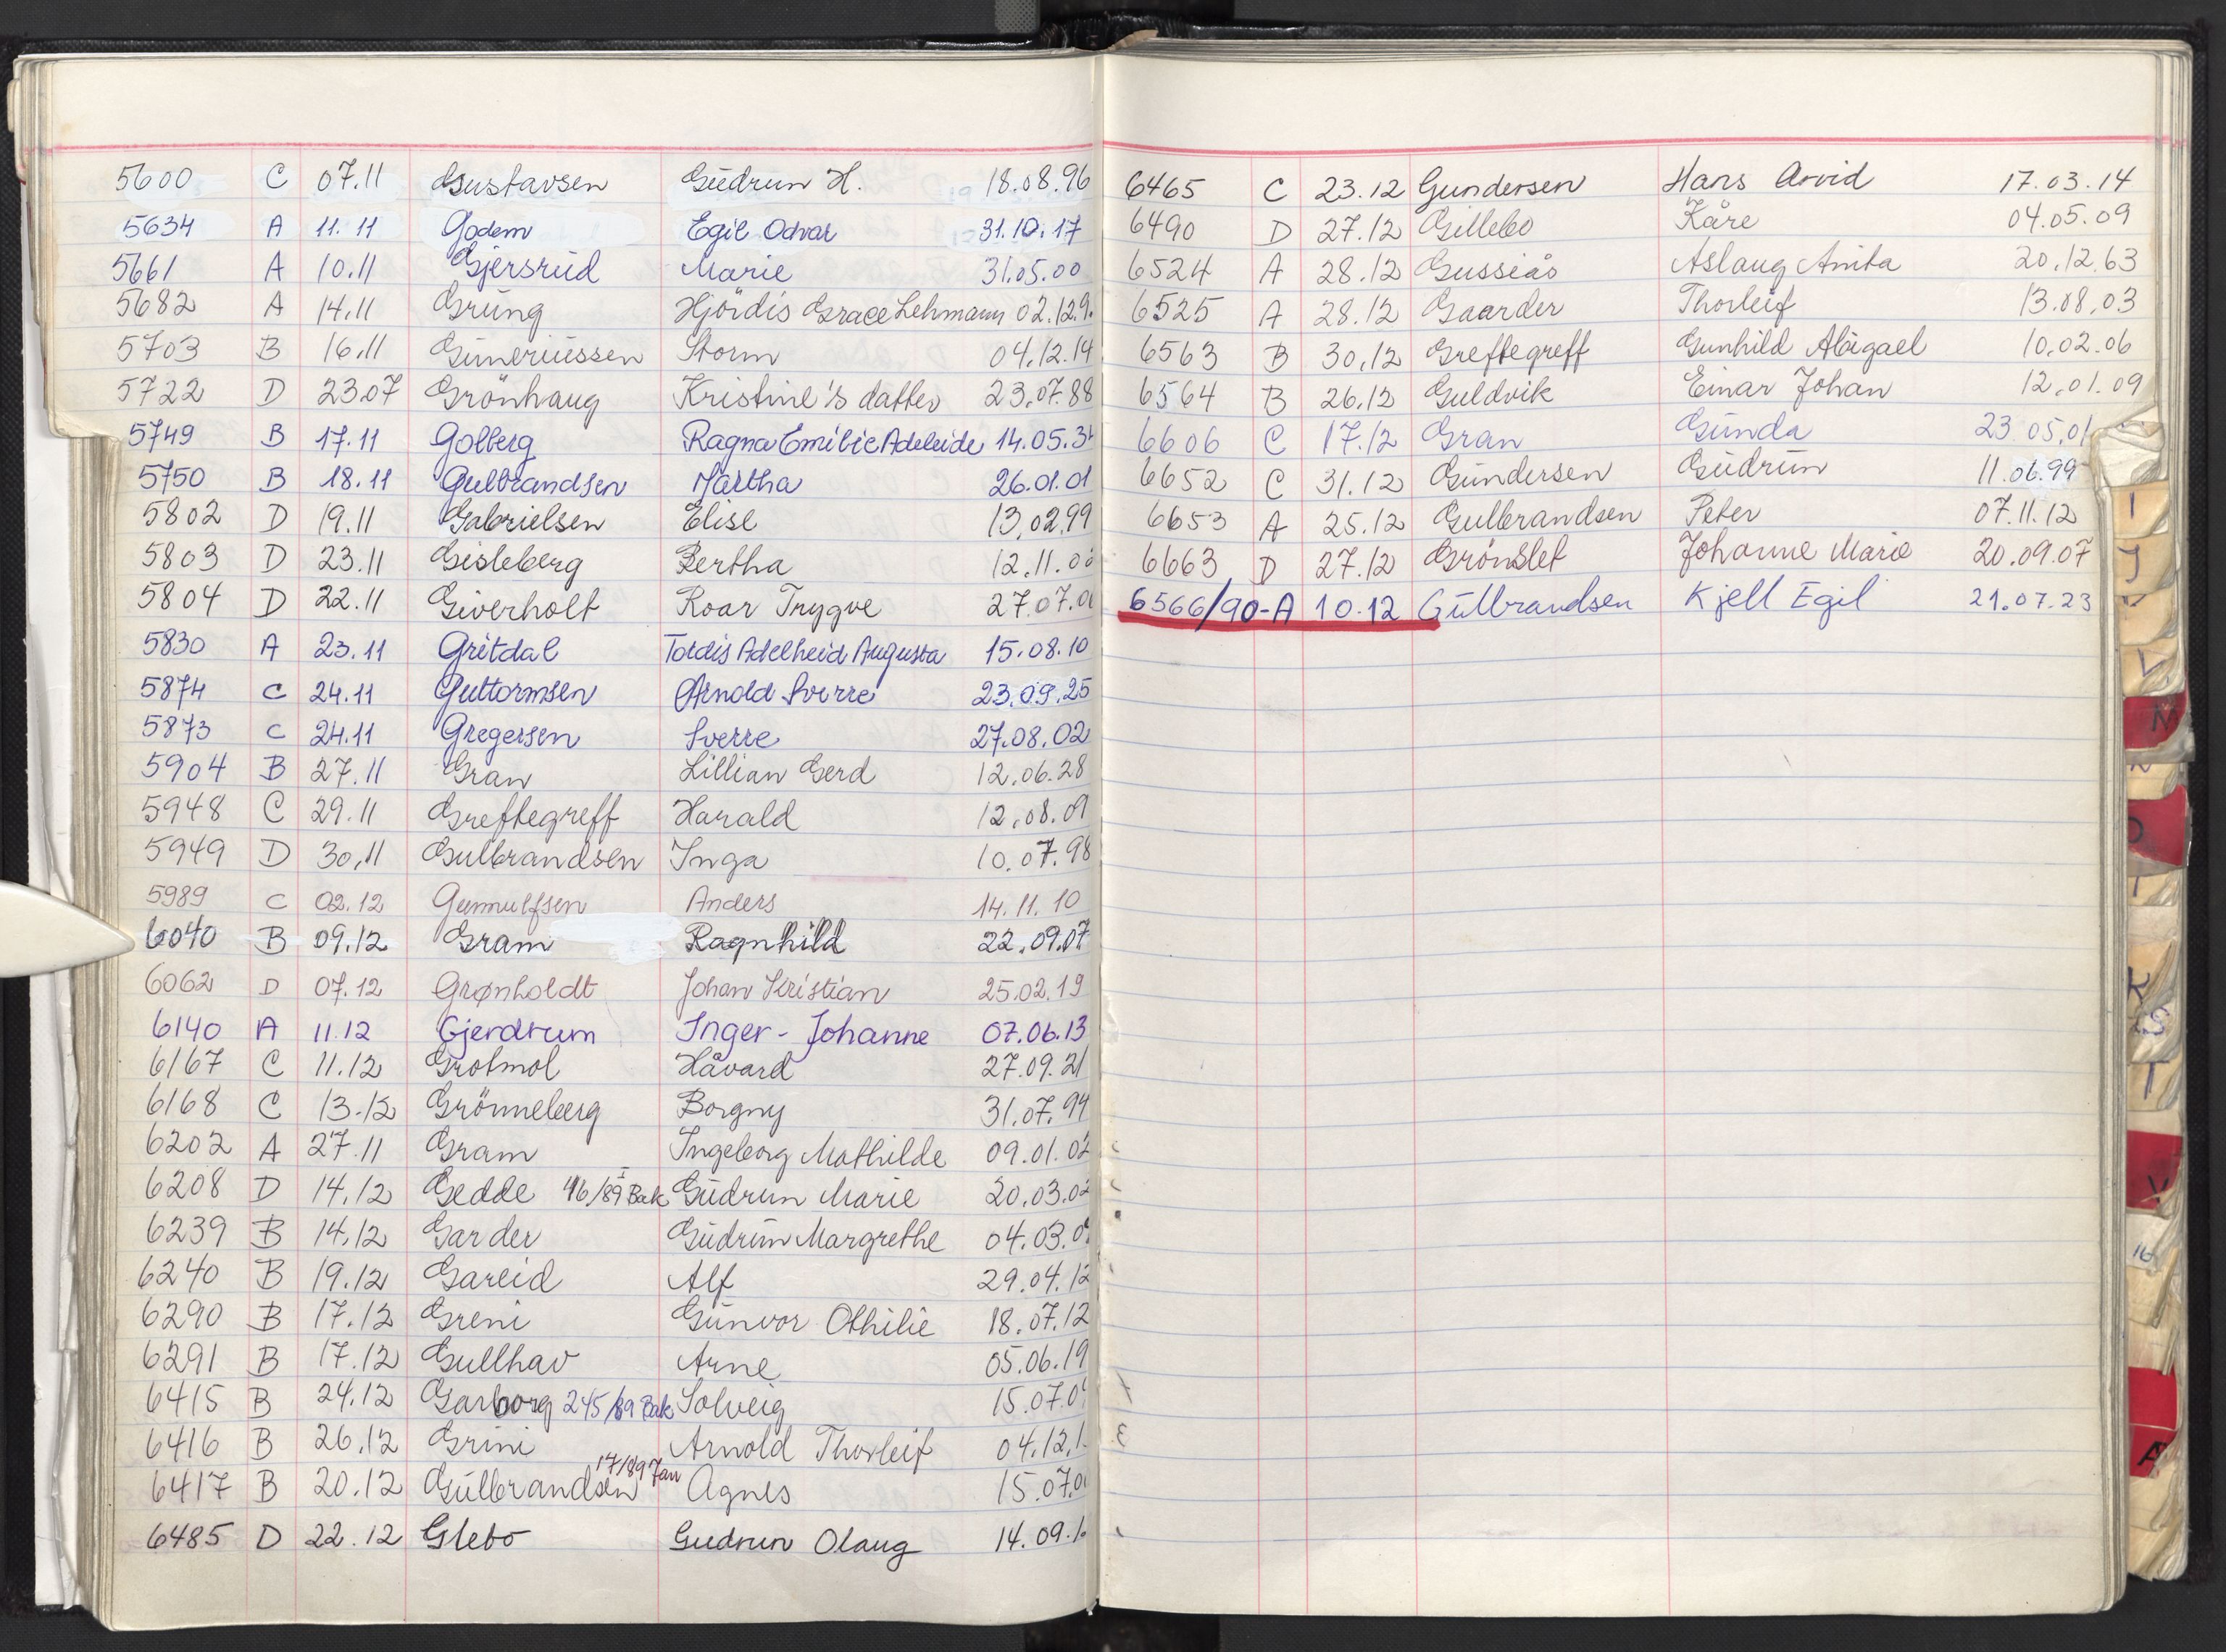 5600 C 07.11 Gustavsen Gudrun H. 18.08.96
5634 A 11.11 Godem Egil Odvar 31.10.17
5661 A 10.11 Gjersrud Marie 31.05.00
5682 A 14.11 Grung Hjördis Grace Lehmann 02.12.9
5703 B 16.11 Guneriussen Storm 04.12.14
5722 D 23.07 Grönhaug Kristine's datter 23.07.88
5749 B 17.11 Golberg Ragna Emilie Adeleide 14.05.3
5750 B 18.11 Gulbrandsen Martha 26.01.01
5802 D 19.11 Gabrielsen Elise 13.02.99
5803 D 23.11 Gisleberg Bertha 12.11.0
5804 D 22.11 Giverholt Roar Trygve 27.07.0
5830 A 23.11 Gritdal Tordis Adelheid Augusta 15.08.10
5874 C 24.11 Guttormsen Arnold Sverre 23.09.25
5873 C 24.11 Gregersen Sverre 27.08.02
5904 B 27.11 Gran Lillian Gerd 12.06.28
5948 C 29.11 Greftegreff Harald 12.08.09
5949 D 30.11 Gulbrandsen Inga 10.07.98
5989 C 02.12 Gunnulfsen Anders 14.11.10
6040 B 09.12 Gram Ragnhild 22.09.07
6062 D 07.12 Grønholdt Johan Kristian 25.02.19
6140 A 11.12 Gjerdrum Inger-Johanne 07.06.13
6167 C 11.12 Grotmol Håvard 27.09.21
6168 C 13.12 Grönneberg Borgny 31.07.94
6202 A 27.11 Gram Ingeborg Mathilde 09.01.02
6208 D 14.12 Gedde 46/89 I Bak Gudrun Marie 20.03.02
6239 B 14.12 Garder Gudrun Margrethe 04.03.0
6240 B 19.12 Gareid Alf 29.04.12
6290 B 17.12 Greni Gunvor Othilie 18.07.12
6291 B 17.12 Gullhav Arne 05.06.19
6415 B 24.12 Garborg 245/89 Bak Solveig 15.07.0
6416 B 26.12 Grini Arnold Thorleif 04.12.1
6417 B 20.12 Gulbrandsen 17/89 Jan Agnes 15.07.0
6485 D 22.12 Glebo Gudrun Olaug 14.09.1
6465 C 23.12 Gundersen Hans Arvid 17.03.14
6490 D 27.12 Gillebo Kåre 04.05.09
6524 A 28.12 Gussiås Aslaug Anita 20.12.63
6525 A 28.12 Gaarder Thorleif 13.08.03
6563 B 30.12 Greftegreff Gunhild Abigael 10.02.06
6564 B 26.12 Guldvik Einar Johan 12.01.09
6606 C 17.12 Gran Gunda 23.05.01
6652 C 31.12 Gundersen Gudrun 11.06.99
6653 A 25.12 Gulbrandsen Peter 07.11.12
6663 D 27.12 Grönslet Johanne Marie 20.09.07
6566/90-A 10.12 Gulbrandsen Kjell Egil 21.07.23
I
J
L
M
N
O
K
S
T
V
16